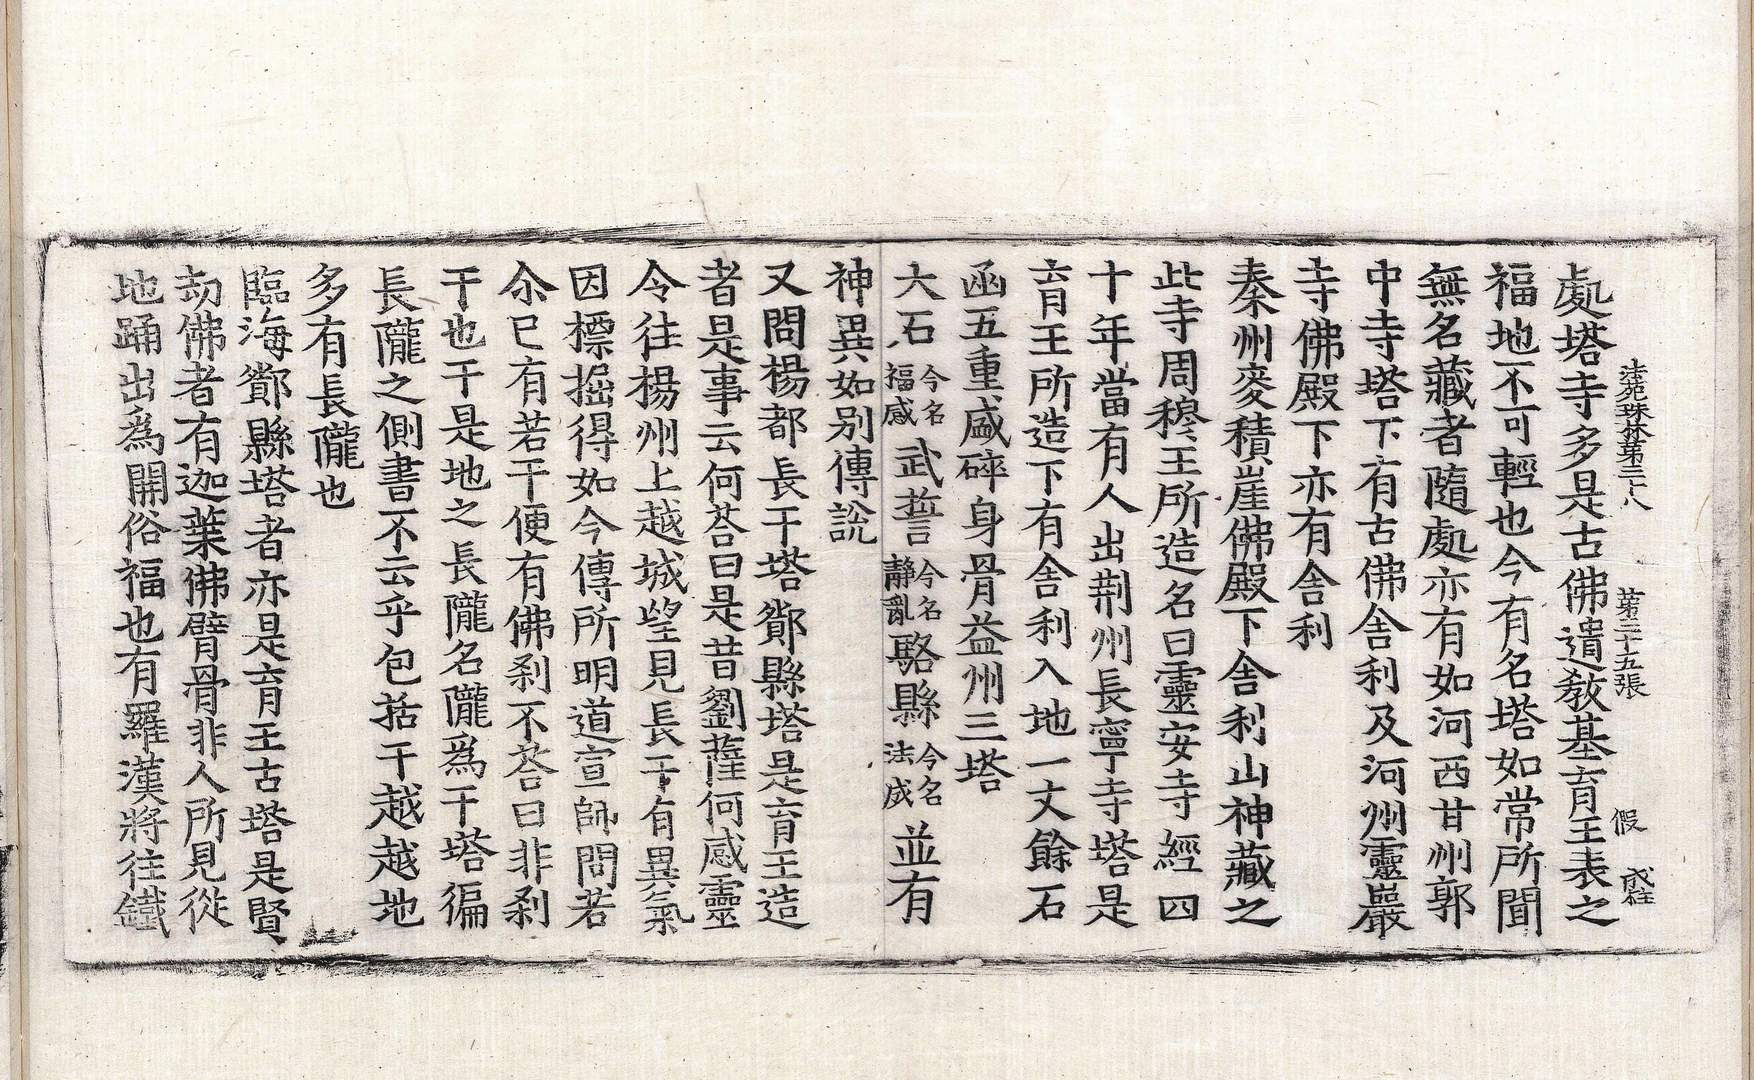 法苑珠林第三十八 第三十五張 假 戍柱
處塔寺多是古佛遺教基育王表之
福地不可輕也今有名塔如常所聞
無名藏者隨處亦有如河西甘州郭
中寺塔下有古佛舍利及河州靈巖
寺佛殿下亦有舍利
秦州麥積崖佛殿下舍利山神藏之
此寺周穆王所造名曰靈安寺經四
十年當有人出荆州長寧寺塔是
育王所造下有舍利入地一丈餘石
函五重盛碎身骨益州三塔
大石今名福感武誓今名靜亂駱縣今名法成並有
神異如别傳說
又問楊都長干塔鄮縣塔是育王造
者是事云何荅曰是昔劉薩何感靈
令往楊州上越城望見長干有異氣
因標掘得如今傳所明道宣師問若
尒已有若干便有佛剎不荅曰非剎
干也干是地之長隴名隴爲干塔徧
長隴之側書不云乎包括干越越地
多有長隴也
臨海鄮縣塔者亦是育王古塔是賢
劫佛者有迦葉佛臂骨非人所見從
地踊出爲開俗福也有羅漢將往鐵